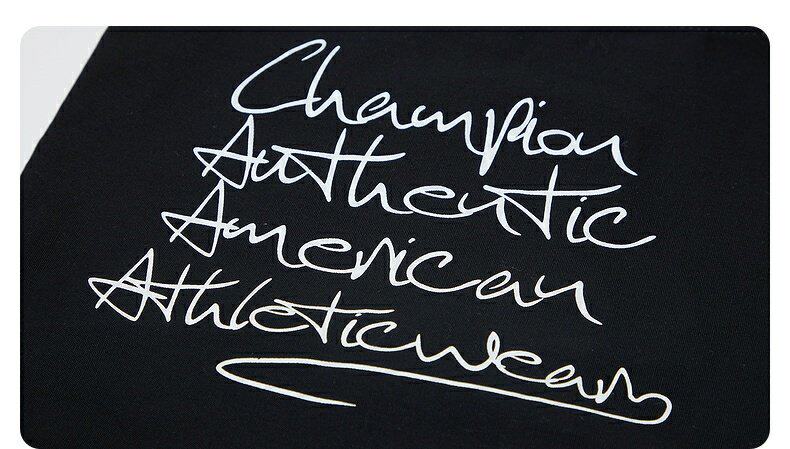 Champion
Authentic
American
Athleticwear